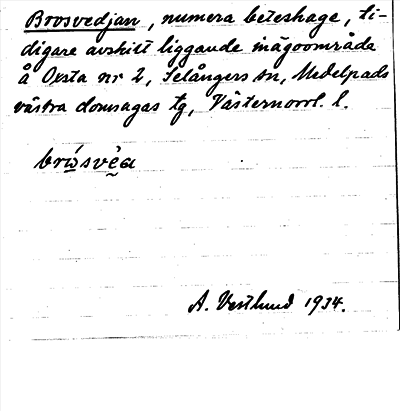 Brosvedjan, numera beteshage, ti-
digare avskilt liggande inägoområde
å Oxsta nr 2, Selångers sn, Medelpads
västra domsagas tg, Västernorrl. l.
brosvèa
A. Vestlund 1934.